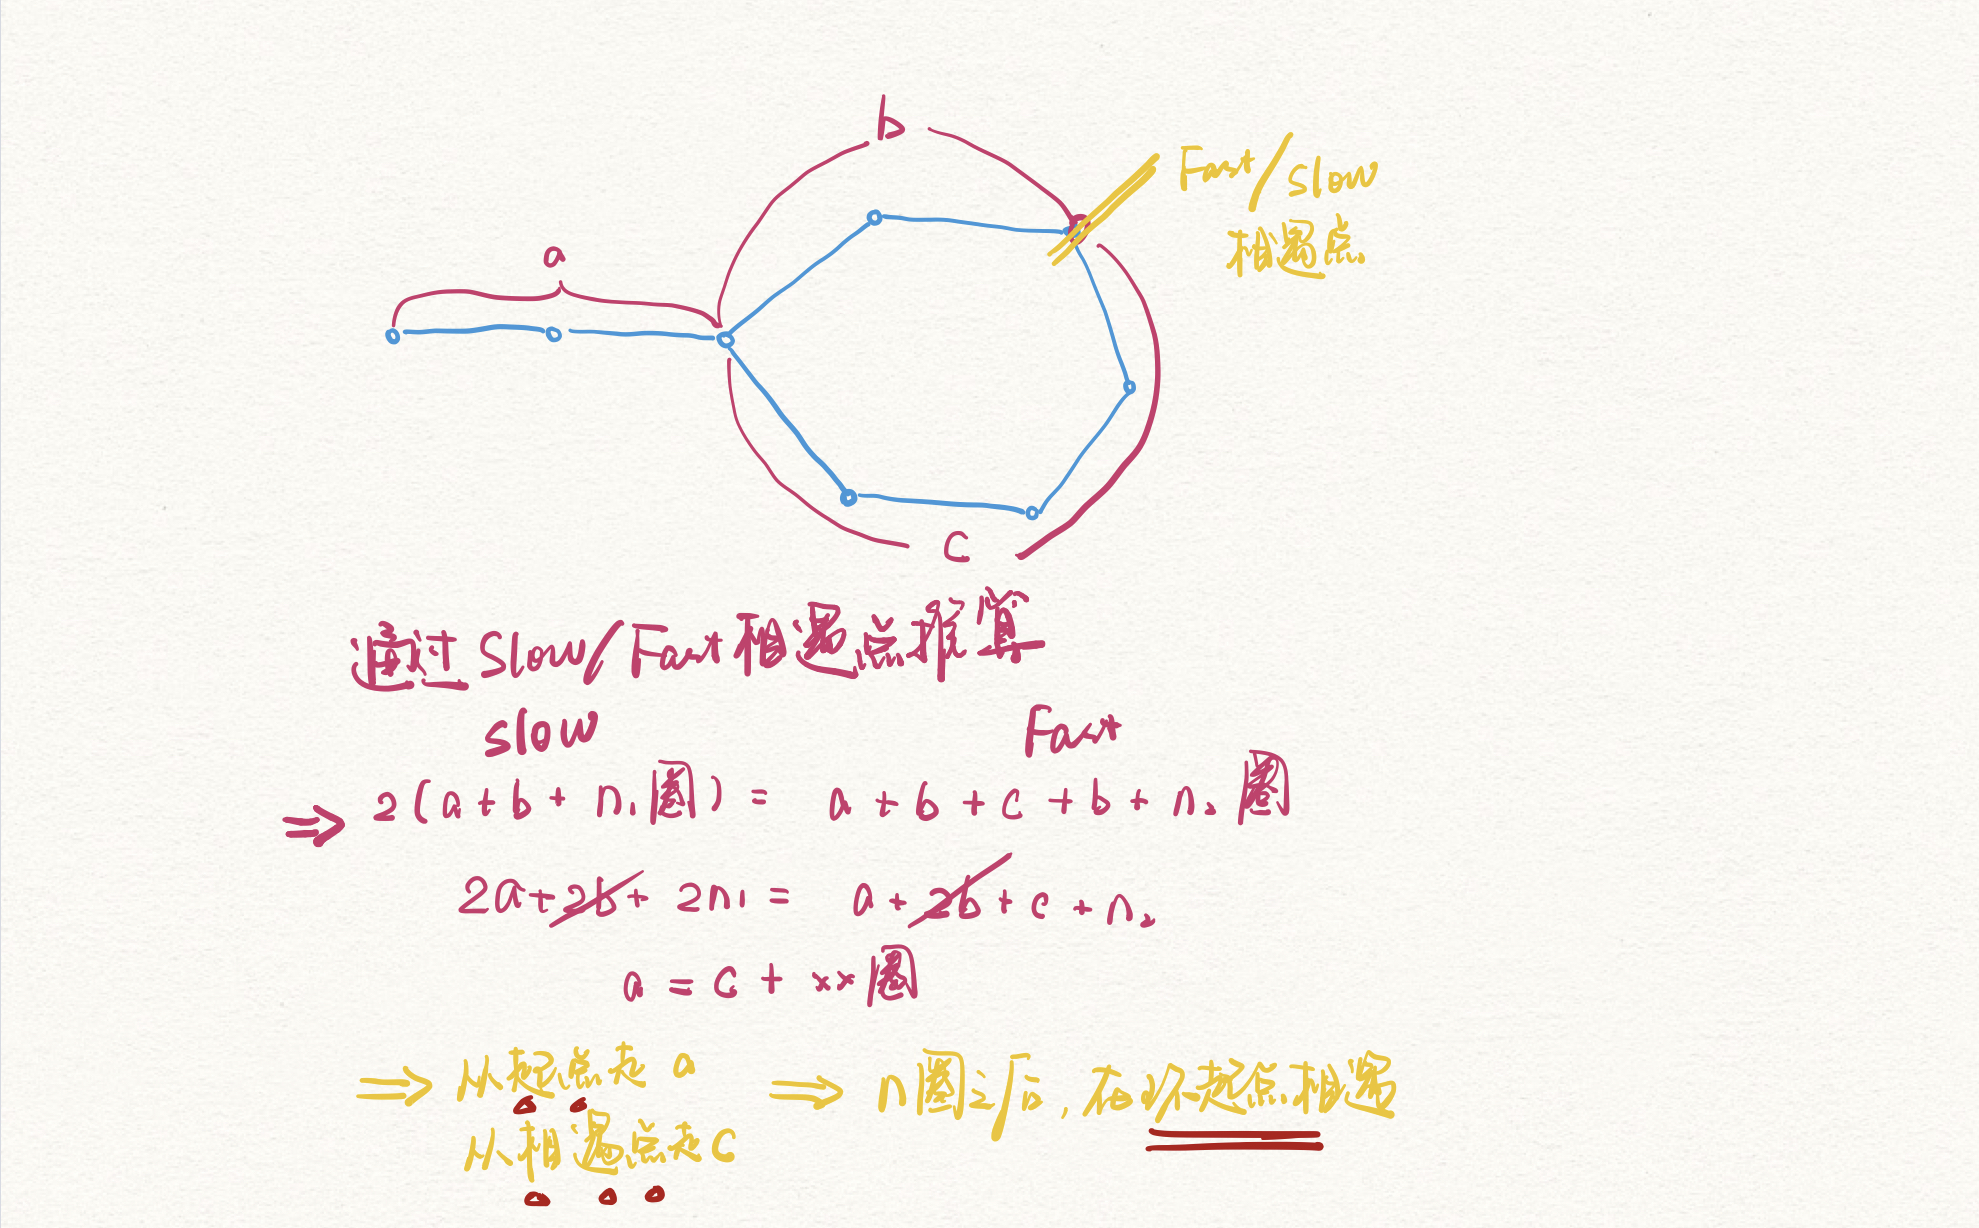 b
Fast/slow
相遇点
a
c
通过slow/Fast相遇点推算
slow Fast
⇒ 2(a+b+n₁圈) = a+b+c+b+n₂圈
2a+2b+2n₁ = a+2b+c+n₂
a = c + xx圈
⇒ 从起点走 a ⇒ n圈之后,在环起点相遇
从相遇点走c